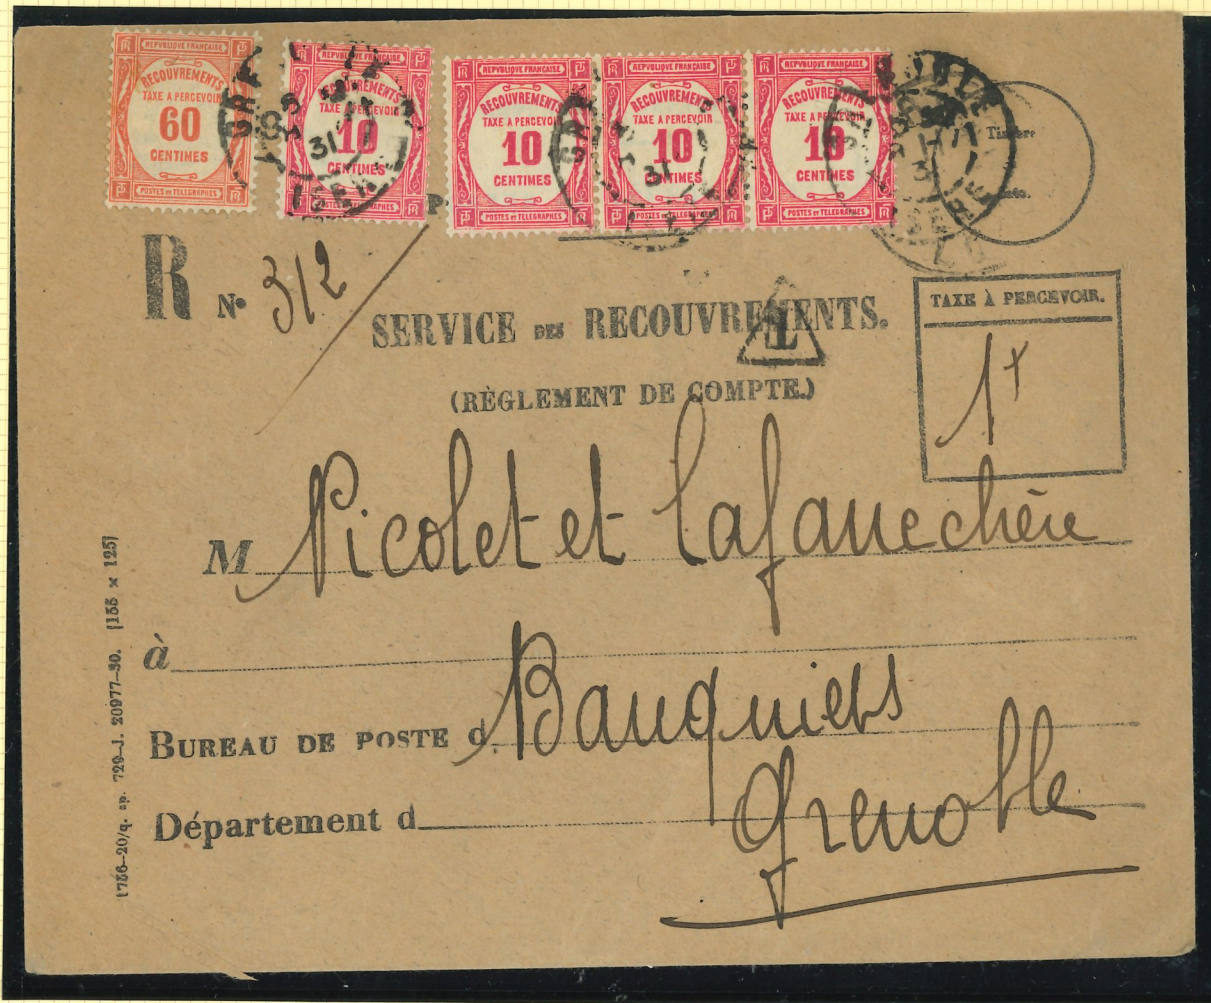 REPVBLIQUE FRANÇAISE
RECOUVREMENTS
TAXE A PERCEVOIR
60
CENTIMES
POSTES ET TELEGRAPHES
REPVBLIQUE FRANÇAISE
RECOUVREMENTS
TAXE A PERCEVOIR
10
CENTIMES
POSTES ET TELEGRAPHES
REPVBLIQUE FRANÇAISE
RECOUVREMENTS
TAXE A PERCEVOIR
10
CENTIMES
POSTES ET TELEGRAPHES
REPVBLIQUE FRANÇAISE
RECOUVREMENTS
TAXE A PERCEVOIR
10
CENTIMES
POSTES ET TELEGRAPHES
REPVBLIQUE FRANÇAISE
RECOUVREMENTS
TAXE A PERCEVOIR
10
CENTIMES
POSTES ET TELEGRAPHES
31
ISERE
Timbre
R No 312
SERVICE DES RECOUVREMENTS.
T
(RÈGLEMENT DE COMPTE.)
TAXE À PERCEVOIR.
1f
M Nicolet et Lafanechère
à
BUREAU DE POSTE d Banquiers
Département d Grenoble
1756-20/q. sp. 729-J. 20977-30. [155 x 125]